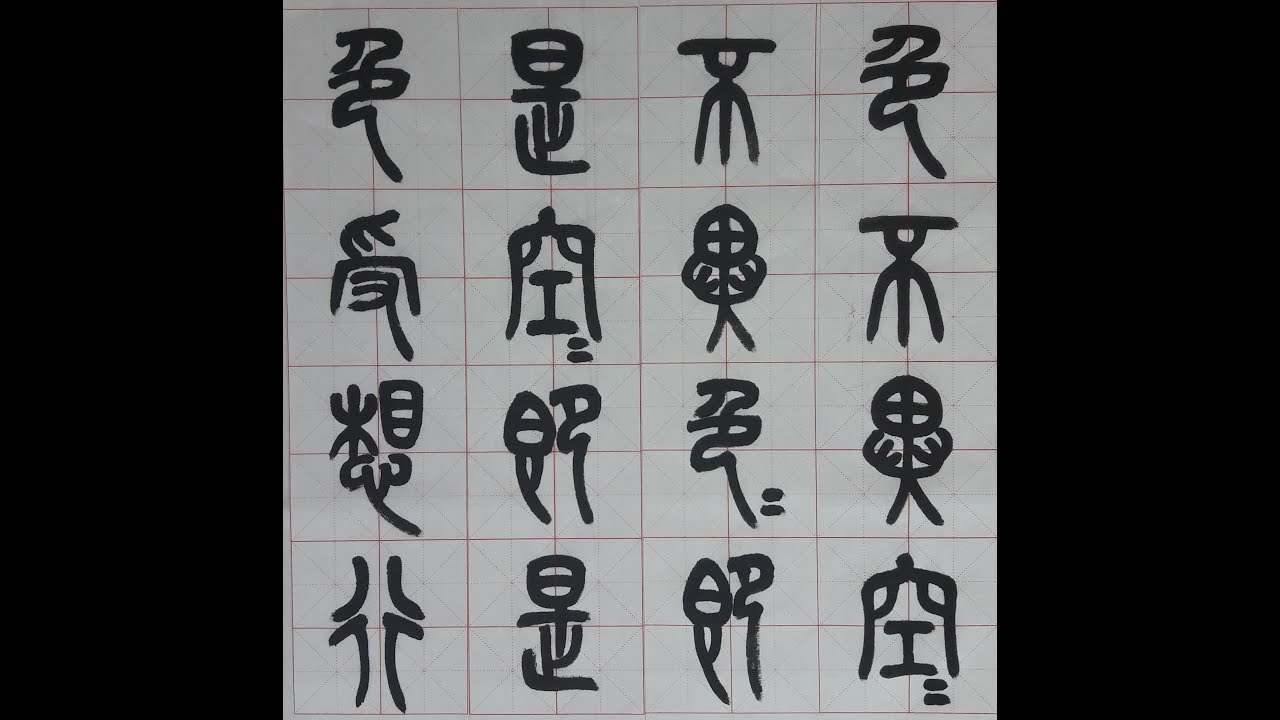 色不異空〻
不異色〻即
是空〻即是
色受想行